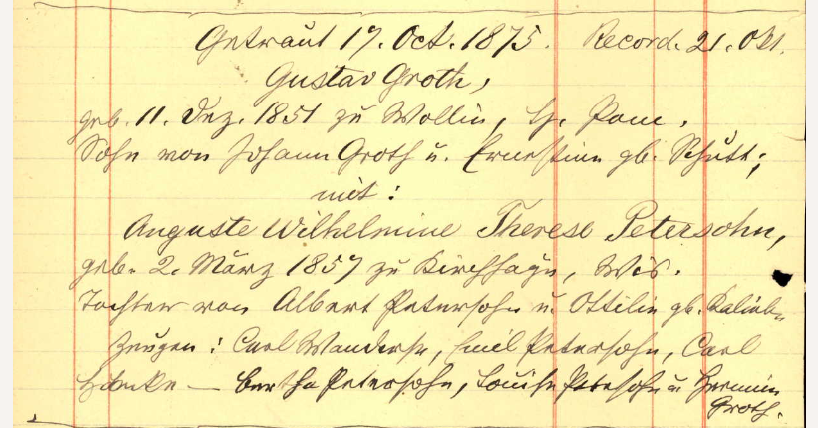 Getraut 17. Oct. 1875. Record. 21. Okt.
Gustav Groth,
geb. 11. Dez. 1851 zu Wollin, Pom.
Sohn von Johann Groth u. Ernestine gb. Schütt;
mit:
Auguste Wilhelmine Therese Petersohn,
geb. 2. März 1857 zu Kirchhayn, Wis.
Tochter von Albert Petersohn u. Ottilie gb.
Zeugen: Carl Emil Petersohn, Carl
— Bertha Petersohn, Louise Petersohn u Hermine
Groth.